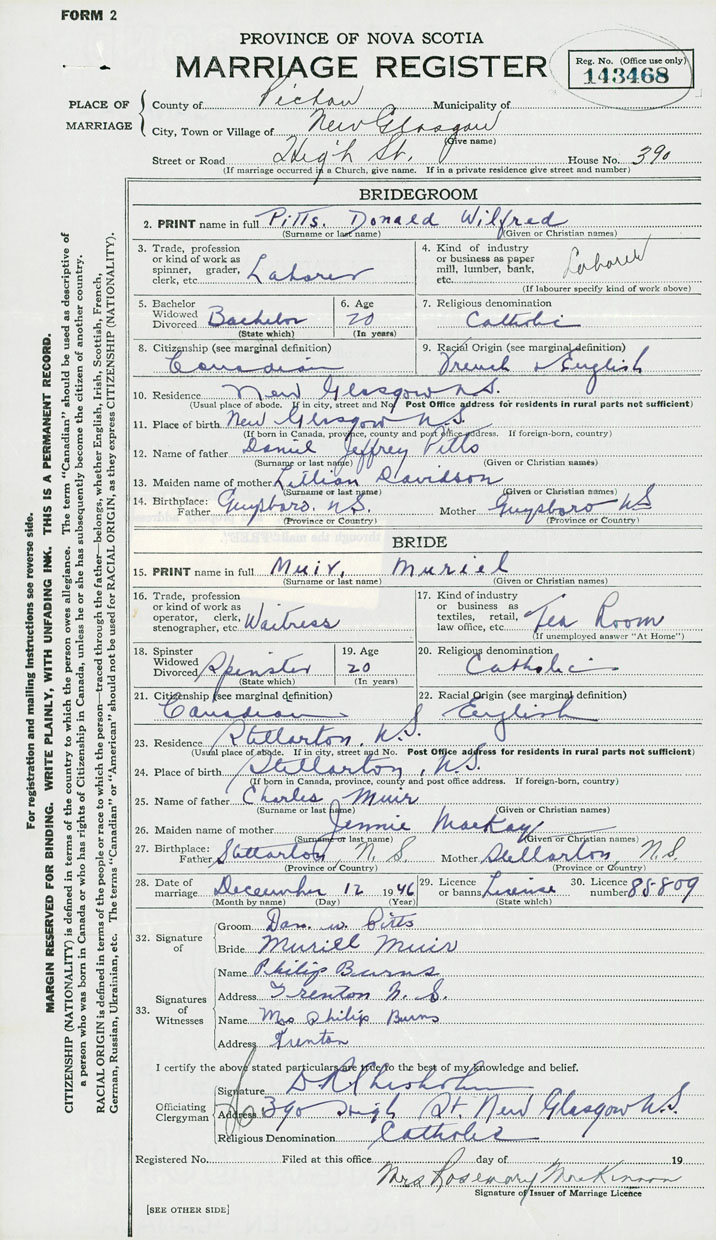 FORM 2
PROVINCE OF NOVA SCOTIA
MARRIAGE REGISTER
Reg. No. (Office use only)
143468
PLACE OF MARRIAGE
County of Pictou Municipality of
City, Town or Village of New Glasgow
(Give name)
Street or Road High St. House No. 390
(If marriage occurred in a Church, give name. If in a private residence give street and number)
BRIDEGROOM
2. PRINT name in full Pitts. Donald Wilfred
(Surname or last name) (Given or Christian names)
3. Trade, profession or kind of work as spinner, grader, clerk, etc. Laborer
4. Kind of industry or business as paper mill, lumber, bank, etc. Laborer
(If labourer specify kind of work above)
5. Bachelor Widowed Divorced Bachelor
(State which)
6. Age 20
(In years)
7. Religious denomination
Catholic
8. Citizenship (see marginal definition)
Canadian
9. Racial Origin (see marginal definition)
French & English
10. Residence New Glasgow N.S.
(Usual place of abode. If in city, street and No. Post Office address for residents in rural parts not sufficient)
11. Place of birth New Glasgow N.S.
(If born in Canada, province, county and post office address. If foreign-born, country)
12. Name of father Daniel Jeffrey Pitts
(Surname or last name) (Given or Christian names)
13. Maiden name of mother Lillian Davidson
(Surname or last name) (Given or Christian names)
14. Birthplace: Father Guysboro. N.S. Mother Guysboro N S
(Province or Country) (Province or Country)
BRIDE
15. PRINT name in full Muir, Muriel
(Surname or last name) (Given or Christian names)
16. Trade, profession or kind of work as operator, clerk, stenographer, etc. Waitress
17. Kind of industry or business as textiles, retail, law office, etc. Tea Room
(If unemployed answer "At Home")
18. Spinster Widowed Divorced Spinster
(State which)
19. Age 20
(In years)
20. Religious denomination
Catholic
21. Citizenship (see marginal definition)
Canadian
22. Racial Origin (see marginal definition)
English
23. Residence Stellarton, N.S.
(Usual place of abode. If in city, street and No. Post Office address for residents in rural parts not sufficient)
24. Place of birth Stellarton, N.S.
(If born in Canada, province, county and post office address. If foreign-born, country)
25. Name of father Charles Muir
(Surname or last name) (Given or Christian names)
26. Maiden name of mother Jennie MacKay
(Surname or last name) (Given or Christian names)
27. Birthplace: Father Stellarton, N. S. Mother Stellarton, N.S.
(Province or Country) (Province or Country)
28. Date of marriage December 12 1946
(Month by name) (Day) (Year)
29. Licence or banns License
(State which)
30. Licence number 85-809
32. Signature of
Groom Don. W. Pitts
Bride Murill Muir
33. Signatures of Witnesses
Name Philip Burns
Address Trenton N. S.
Name Mrs Philip Burns
Address Trenton
I certify the above stated particulars are true to the best of my knowledge and belief.
Officiating Clergyman
Signature D R Chisholm
Address 390 High St New Glasgow N.S.
Religious Denomination Catholic
Registered No. Filed at this office day of 19
Mrs Rosemary MacKinnon
Signature of Issuer of Marriage Licence
[SEE OTHER SIDE]
For registration and mailing instructions see reverse side.
MARGIN RESERVED FOR BINDING. WRITE PLAINLY, WITH UNFADING INK. THIS IS A PERMANENT RECORD.
CITIZENSHIP (NATIONALITY) is defined in terms of the country to which the person owes allegiance. The term "Canadian" should be used as descriptive of
a person who was born in Canada or who has rights of Citizenship in Canada, unless he or she has subsequently become the citizen of another country.
RACIAL ORIGIN is defined in terms of the people or race to which the person—traced through the father—belongs, whether English, Irish, Scottish, French,
German, Russian, Ukrainian, etc. The terms "Canadian" or "American" should not be used for RACIAL ORIGIN, as they express CITIZENSHIP (NATIONALITY).